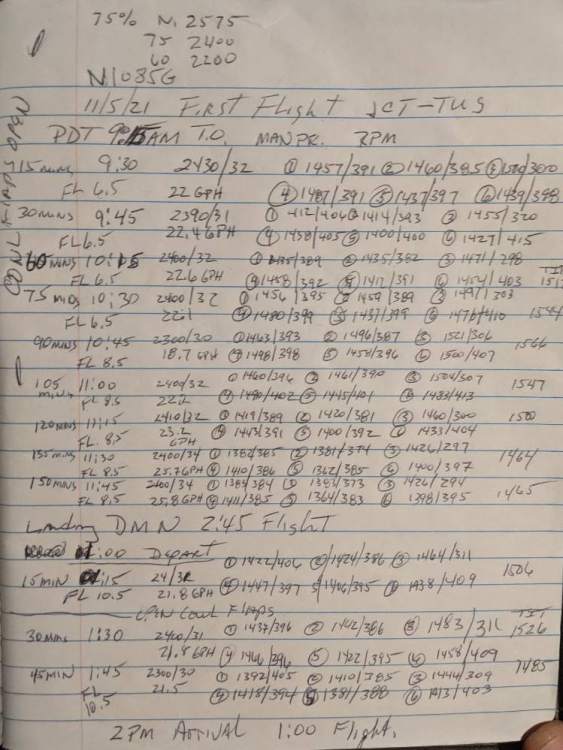 75% N. 2575
75 2400
60 2200
N1085G
11/5/21 First Flight JCT-TUS
PDT AM T.O. MAN PR. RPM
15 mins 9:30 2430/32 ① 1457/391 ② 1460/385 ③ 1500/300
FL 6.5 22 GPH ④ 1487/391 ⑤ 1437/397 ⑥ 1439/398
30 mins 9:45 2390/31 ① 1412/406 ② 1414/393 ③ 1455/320
FL 6.5 22.4 GPH ④ 1438/405 ⑤ 1400/400 ⑥ 1427/415
COWL FLAPS OPEN
60 mins 10:15 2400/32 ① 1435/389 ② 1435/382 ③ 1471/298
TIT
FL 6.5 22.6 GPH ④ 1458/392 ⑤ 1417/391 ⑥ 1454/403
75 mins 10:30 2400/32 ① 1456/395 ② 1459/389 ③ 1491/303
FL 6.5 22.1 ④ 1480/399 ⑤ 1437/399 ⑥ 1476/410 1544
90 mins 10:45 2300/30 ① 1463/393 ② 1496/387 ③ 1521/306 1566
FL 8.5 18.7 GPH ④ 1498/398 ⑤ 1458/396 ⑥ 1500/407
105 mins 11:00 2400/32 ① 1460/396 ② 1461/390 ③ 1504/307 1547
FL 8.5 22.2 ④ 1490/402 ⑤ 1445/401 ⑥ 1483/413
120 mins 11:15 2410/32 ① 1419/389 ② 1420/381 ③ 1460/300 1500
FL 8.5 23.2 GPH ④ 1443/391 ⑤ 1400/392 ⑥ 1433/404
135 min 11:30 2400/34 ① 1382/385 ② 1381/374 ③ 1426/297 1464
FL 8.5 25.7 GPH ④ 1410/386 ⑤ 1362/385 ⑥ 1400/397
150 mins 11:45 2400/34 ① 1384/384 ② 1383/373 ③ 1426/294 1465
FL 8.5 25.8 GPH ④ 1411/385 ⑤ 1364/383 ⑥ 1398/395
Landing DMN 2:45 Flight
:00 Depart ① 1422/406 ② 1424/386 ③ 1464/311
15 min :15 24/32 ④ 1447/397 5/1406/395 ⑥ 1438/409 1506
FL 10.5 21.8 GPH
OPEN Cowl Flaps
30 mins 1:30 2400/31 ① 1437/396 ② 1442/386 ③ 1483/311
TIT
1526
21.8 GPH ④ 1466/396 ⑤ 1422/395 ⑥ 1458/409
45 min 1:45 2300/30 ① 1392/405 ② 1410/385 ③ 1444/309 1485
FL 10.5 21.5 ④ 1418/394 ⑤ 1381/388 ⑥ 1413/403
2 PM Arrival 1:00 Flight.